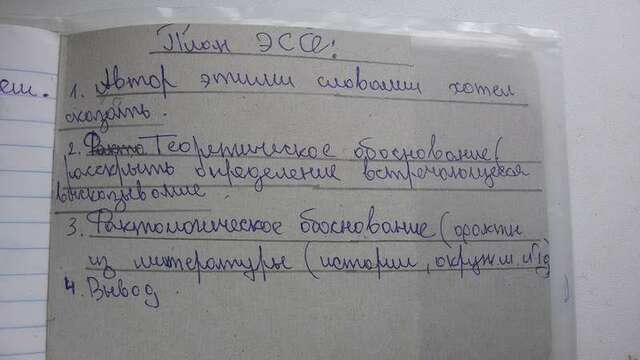 ем.
План ЭССе:
1. Автор этими словами хотел
сказать.
2. Теоретическое обоснование (
расскрыть определение встречающиеся
высказывание
3. Фактологическое боснование (факты
из литературы (истории, окруж.м. и тд)
4. Вывод.